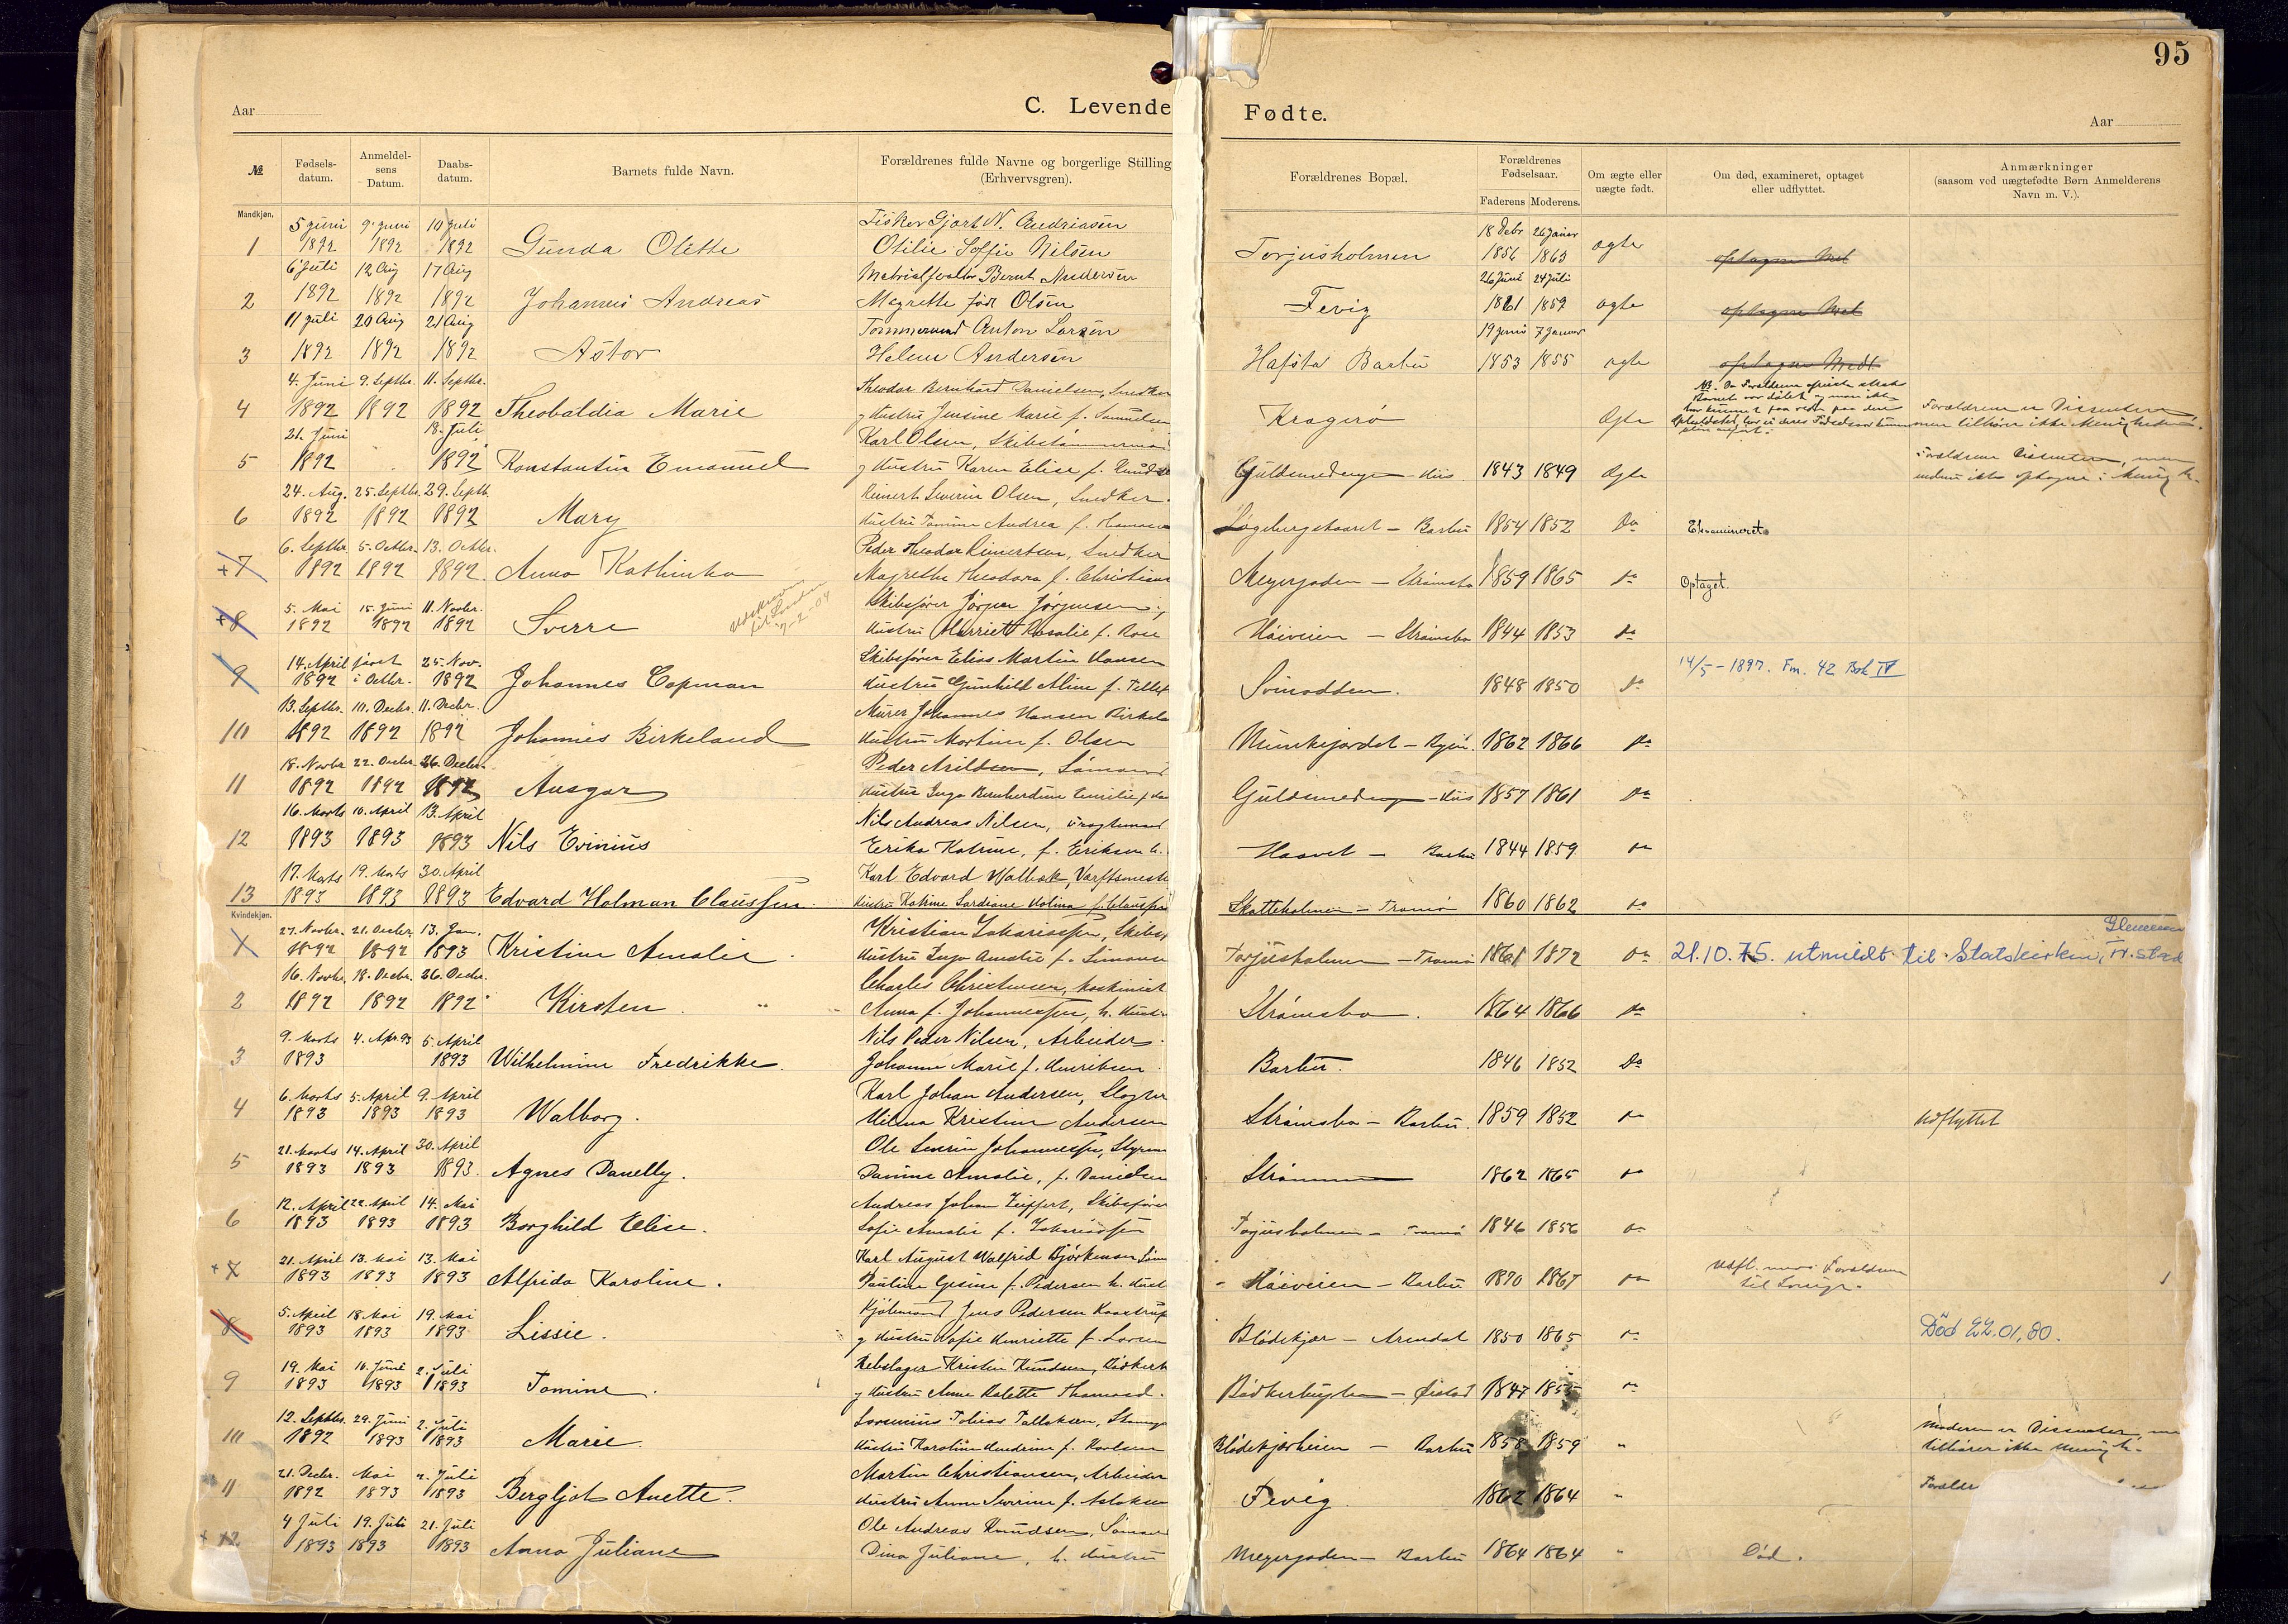 95
Aar
C. Levende Fødte.
Aar
№
Fødsels-datum.
Anmeldel-sens Datum.
Daabs-datum.
Barnets fulde Navn.
Forældrenes fulde Navne og borgerlige Stilling (Erhvervsgren).
Forældrenes Bopæl.
Forældrenes Fødselsaar.
Faderens Moderens.
Om ægte eller uægte født.
Om død, examineret, optaget eller udflyttet.
Anmærkninger (saasom ved uægtefødte Børn Anmelderens Navn m. V.).
Mandkjøn.
5 juni 9 juni 10 juli Fisker Gjart N. Andriasen 18 26 Januar
1 1892 1892 1892 Gunda Olette Otilie Soffie Nilsen Torjusholmen 1856 1863 ægte
6 Juli 12 Aug 17 Aug Bernt Andersen 26 Juni 24 Juli
2 1892 1892 1892 Johannes Andreas Magrette født Olsen Fevig 1861 1859 ægte
11 juli 20 Aug 21 Aug Tømmermand Anton Larsen 19 Juni 7 Januar
3 1892 1892 1892 Astor Helene Andersen Hafsta Barbu 1853 1855 ægte
4. Juni 9. Septbr. 11. Septbr. Theodor Bernhard Danielsen, Snedker
4 1892 1892 1892 Theobaldia Marie g Hustru Jensine Marie f. Samuelsen Kragerø Ægte Forældrene er Dissentere men tilhører ikke Menigheden.
21. Juni 18. Juli Karl Olsen, Skibstømmermand
5 1892 1892 Konstantin Emanuel g Hustru Karen Elise f. Guldsmedenge - Hiis 1843 1849 Ægte Forældrene Dissentere, men endnu ikke optagne i Menigh.
24. Aug. 25. Septbr. 29. Septb. Reinert Severin Olsen, Snedker
6 1892 1892 1892 Mary Hustru Tomine Andrea f. Barbu 1854 1852 Do Examineret
6. Septbr. 5. Octbr. 13. Octbr. Peder Theodor Reinertsen, Snedker
+7 1892 1892 1892. Anna Kathinka Magrethe Theodora f. Christians Meyergaden - Strømsbo 1859 1865 do Optaget.
5. Mai 15. Juni 11. Novbr. Skibsfører Jørgen Jørgensen,
+8 1892 1892 1892 Sverre Hustru Harriet Rosalie f. Rose Høiveien - Strømsbo 1844 1853 do
14. April først 25. Nov. Skibsfører Elias Martin Hansen
9 1892 i Octbr. 1892 Johannes Copman Hustru Gunhild Aline f. Tellef Svinodden. 1848 1850 do 14/5 - 1897. Fm. 42 Bok IV
13. Septbr. 10. Decbr. 11. Decbr. Murer Johannes Hansen Birkela
10 1892 1892 1892 Johannes Birkeland Hustru Martine f. Olsen 1862 1866 do
18. Novbr 22. Decbr. 26. Decbr. Peder Arildsen, Sømand
11 1892 1892 1892 Ansgar Hustru Inga Bernhardine Emilie f. Guldsmedeng - Hiis 1857 1861 do
16. Marts 10. April 13. April Nils Andreas Nilsen,
12 1893 1893 1893 Nils Evinius Erika Katrine, f. Eriksen h. Haavet - Barbu 1844 1859 do
17. Marts 19. Marts 30. April Karl Edvard Walbæk, Værftsmest
13 1893 1893 1893 Edvard Holman Claussen. Hustru Katrine Lardiane Holma f. Clausse Skatteholmen - Tromø 1860 1862 do
Kvindekjøn.
27. Novbr. 21. Decbr. 13. Jan. Kristian Zakariassen, Skibs
1 1892 1892 1893 Kristine Amalie Hustru Inga Amalie f. Simonse Torjusholmen - Tromø 1861 1872 do 21.10.75. utmeldt til Statskirken,
16. Novbr. 18. Decbr. 26. Decbr. Charles Christensen, Maskinist
2 1892 1892 1892 Kirsten Anna f. Johannessen, h. Hustr Strømsbo. 1864 1866 do
9. Marts 4. Apr. 93 5. April Nils Peder Nilsen, Arbeider.
3 1893 1893 Wilhelmine Fredrikke. Johanne Marie f. Henriksen Barbu. 1846 1852 Do
6. Marts 5. April 9. April Karl Johan Andersen, Slagter
4 1893 1893 1893 Walborg. Hilma Kristine Andersen Strømsbo - Barbu. 1859 1852 do Udflyttet
21. Marts 14. April 30. April Ole Severin Johannessen, Styrm
5 1893 1893 1893. Agnes Danelly. Amalie, f. Danielsen Strømmen 1862 1865 do
12. April 22. April 14. Mai Andreas Johan Zeiffert, Skibsfører
6 1893 1893 1893 Borghild Elise. Sofie Amalie f. Zakariassen Torjusholmen - Tromø 1846 1856 do
21. April 13. Mai 13. Mai Karl August Walfrid Bjørkman
+7 1893 1893 1893 Alfrida Karoline. Pauline Gesine f. Pedersen h. Hust Høiveien - Barbu 1870 1867 do Udfl. med Forældrene til
5. April 18. Mai 19. Mai Kjøbmand Jens Pedersen Kaastrup
8 1893 1893 1893 Lissie. g Hustru Sofie Henriette f. Larsen Blødekjær - Arendal 1850 1865 do Död 22.01,80.
19. Mai 16. Juni 2. Juli Rebslager Kristen Knudsen,
9 1893 1893 1893 Tomine. g Hustru Anne Kalette Thomasd. Bødkerbugten - Øiestad 1847 1855 do
12. Septbr. 29. Juni 2. Juli Tobias Tallaksen,
10 1892 1893 1893 Marie. Hustru Karoline Hendrine f. Karlsen Blødekjærheien - Barbu 1858 1859 " Moderen er Dissenter, tilhører ikke Menigh.
21. Decbr. Mai 2. Juli Martin Christiansen, Arbeider
11 1892 1893 1893 Bergljot Anette. Hustru Anne Severine f. Aslaksen Fevig 1862 1864 "
4 Juli 19. Juli 21. Juli Ole Andreas Knudsen, Sømand
+12 1893 1893 1893 Anna Juliane Dina Juliane, h. Hustru Meyergaden - Barbu 1864 1864 " Død.